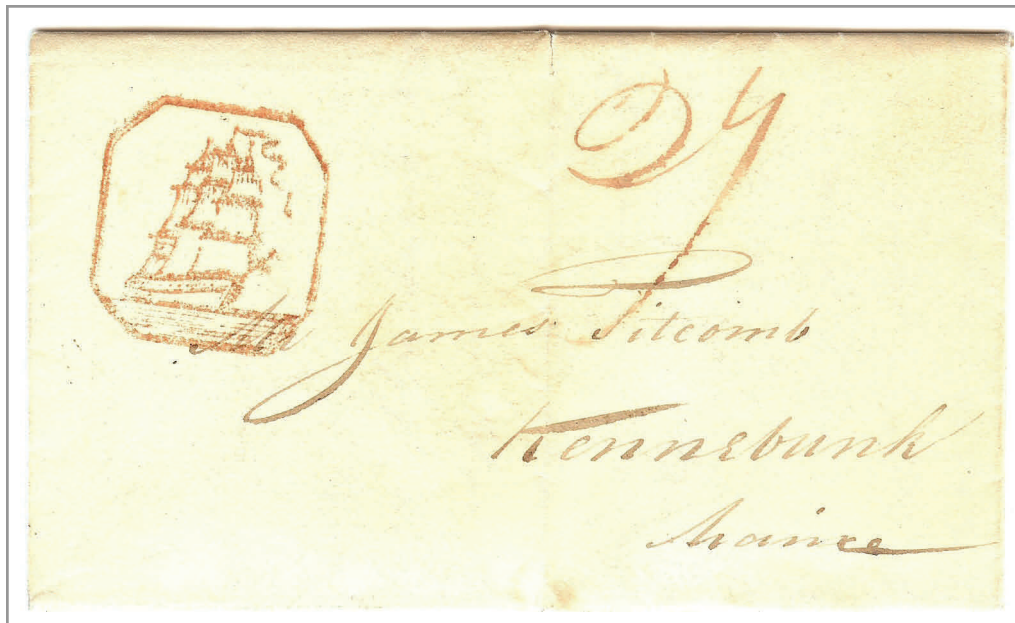 27
Mr James Titcomb
Kennebunk
Maine